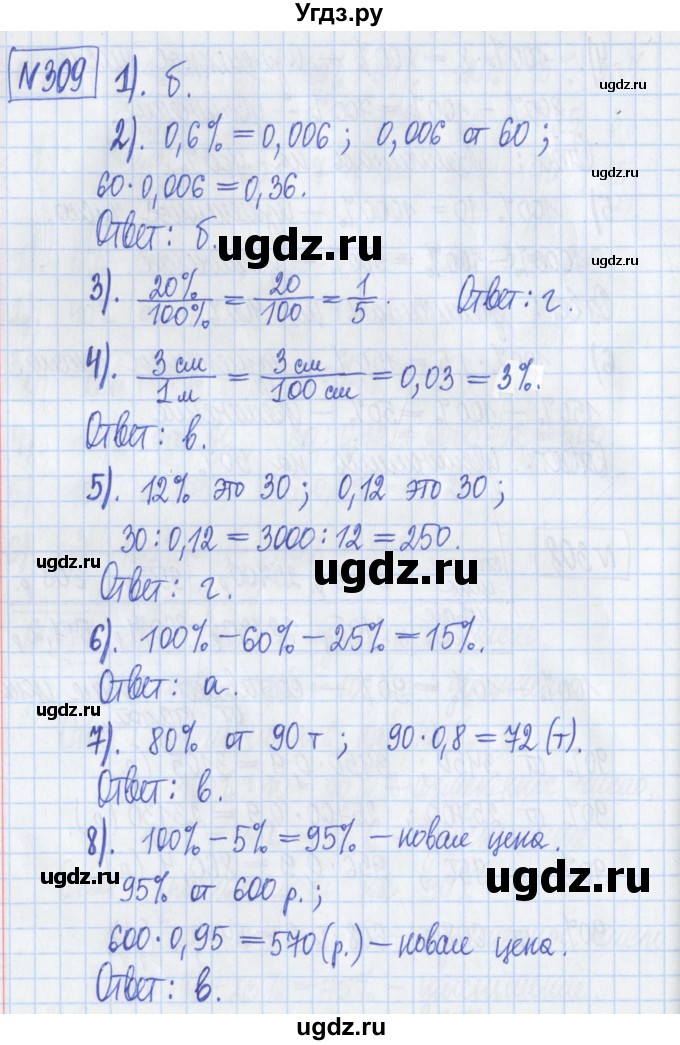 Угдз.ру
№309 1). б.
ugdz.ru
2). 0,6% = 0,006; 0,006 от 60;
ugdz.ru
60·0,006 = 0,36.
Ответ: б.
ugdz.ru
ugdz.ru
3). 20%/100% = 20/100 = 1/5. Ответ: г.
4). 3 см/1 м = 3 см/100 см = 0,03 = 3%.
ugdz.ru
Ответ: в.
5). 12% это 30; 0,12 это 30;
30:0,12 = 3000:12 = 250.
ugdz.ru
ugdz.ru
ugdz.ru
Ответ: г.
6). 100% – 60% – 25% = 15%.
Ответ: а.
ugdz.ru
ugdz.ru
7). 80% от 90 т; 90·0,8 = 72 (т).
Ответ: в.
8). 100% – 5% = 95% – новая цена.
ugdz.ru
95% от 600 р.;
ugdz.ru
600·0,95 = 570 (р.) – новая цена.
Ответ: в.
ugdz.ru
ugdz.ru